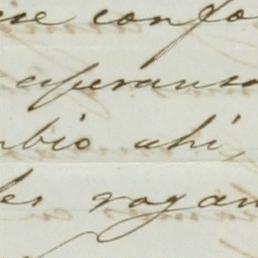 ue confo
esperanso
mbio ahi,
les rogan